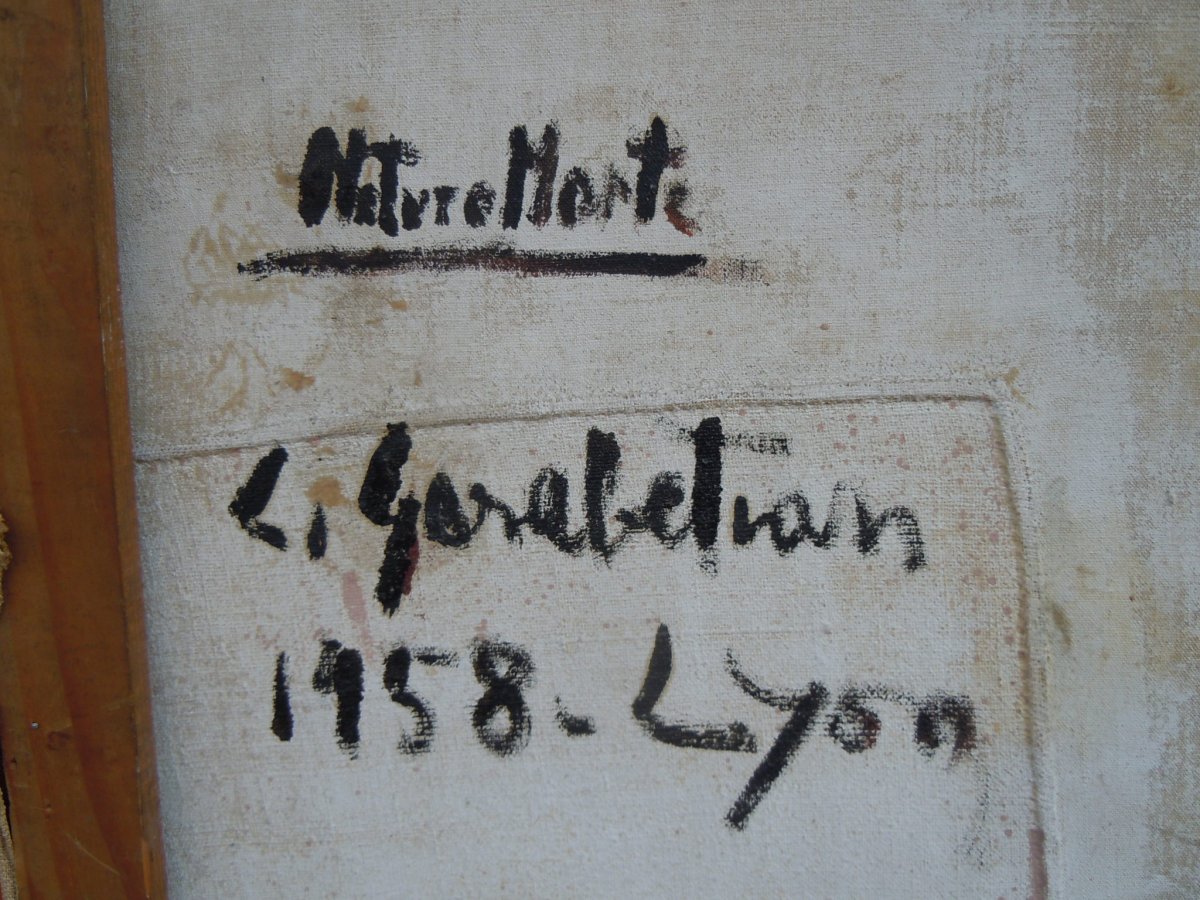 Nature Morte
C. Garabetian
1958 - Lyon